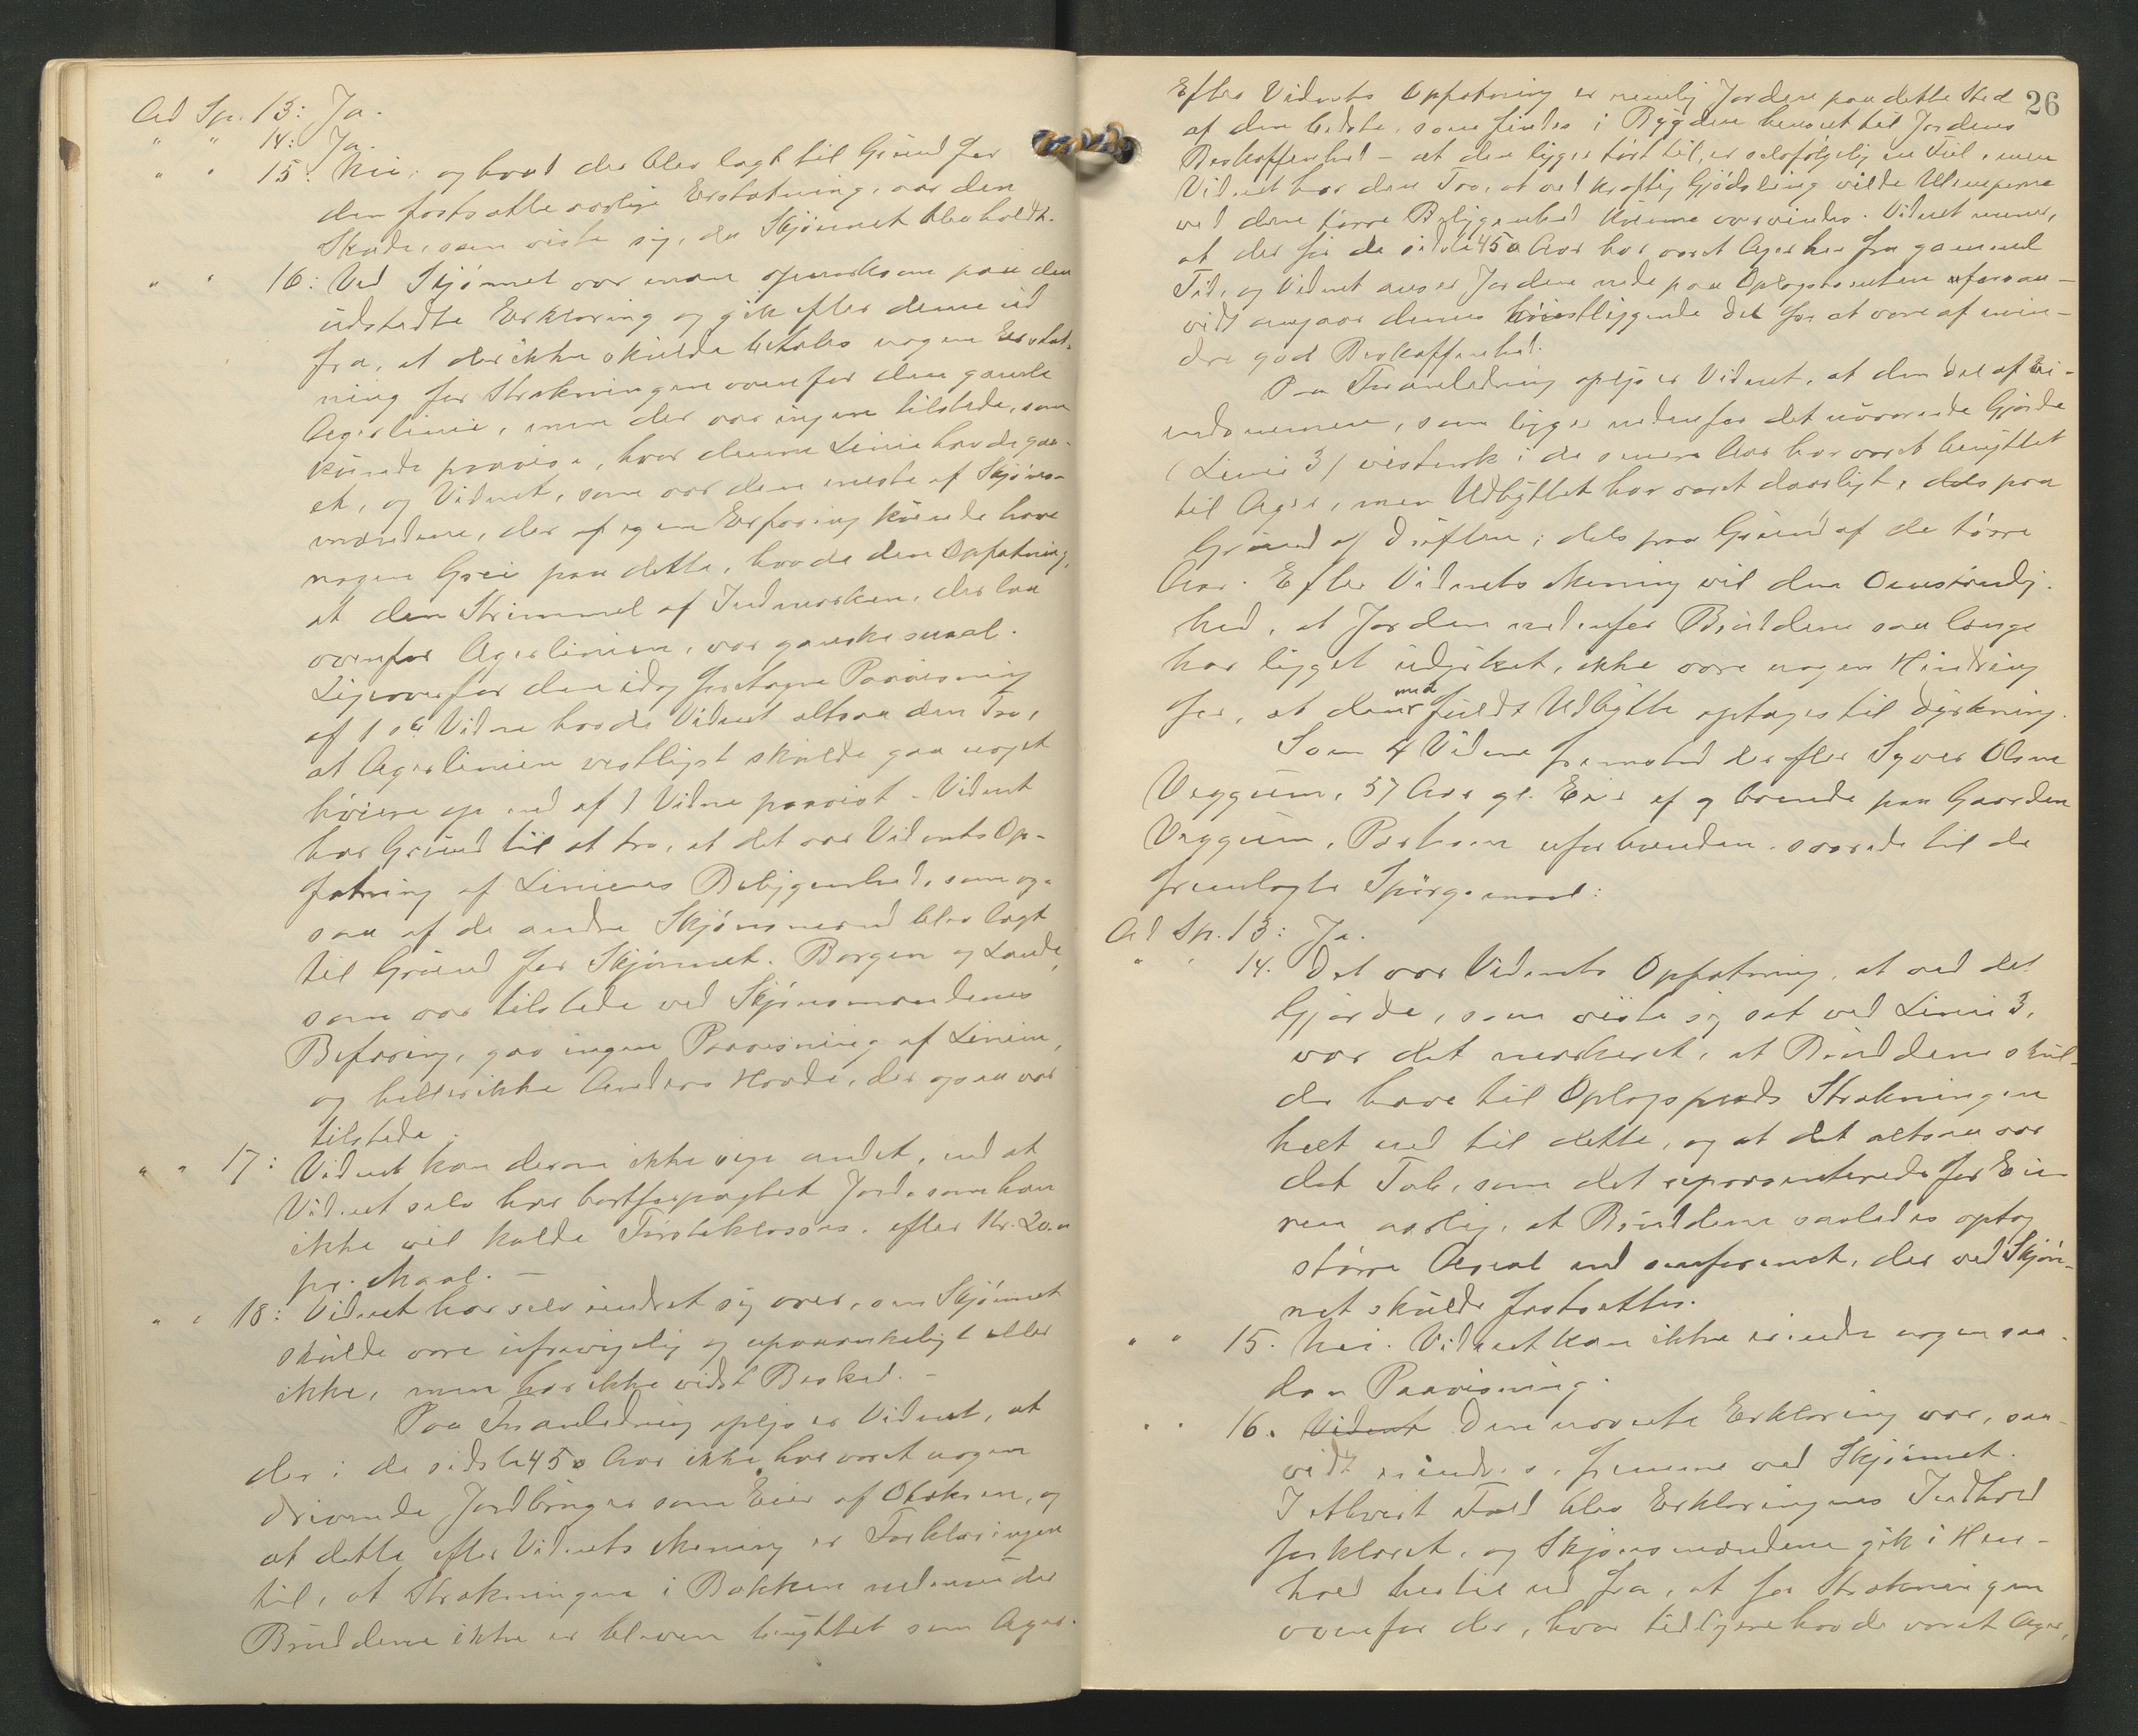 Ad Sp. 13: Ja.
" " 14: Ja.
" " 15: Nei; og hvad der blev lagt til Grund for
den fastsatte aarlige Erstatning, var den
Skade, som viste sig, da Skjønnet blev holdt.
" " 16: Ved Skjønnet var man opmerksom paa den
udstedte Erklæring og gik efter denne ud
fra, at der ikke skulde betales nogen Erstat-
ning for Strækningen ovenfor den gamle
Agerlinie, men der var ingen tilstede, som
kunde paavise, hvor denne Linie havde gaa-
et, og Vidnet, som var den eneste af Skjøns-
mændene, der af egen Erfaring kunde have
nogen Greie paa dette, havde den Opfatning,
at den Strimmel af Indmarken, der laa
ovenfor Agerlinien, var ganske smaal.
Ligeoverfor den idag foretagne Paavisning
af 1ste Vidne havde Vidnet altsaa den Tro,
at Agerlinien vestligst skulde gaa noget
høiere op end af 1 Vidne paavist. Vidnet
har Grund til at tro, at det var Vidnets Op-
fatning af Liniens Beliggenhed, som og-
saa af de andre Skjønsmænd blev lagt
til Grund for Skjønnet. Borgen og Lande,
som var tilstede ved Skjønsmændenes
Befaring, gav ingen Paavisning af Linien,
og heller ikke Anders Hovde, der ogsaa var
tilstede.
" " 17: Vidnet kan derom ikke sige andet, end at
Vidnet selv har bortforpagtet Jord, som han
ikke vil kalde Førsteklasses, efter Kr. 20.00
pr. Maal. —
" " 18: Vidnet har selv undret sig over, om Skjønnet
skulde være ufravigelig og upaaankeligt eller
ikke, men har ikke vidst Besked. —
Paa Foranledning oplyser Vidnet, at
der i de sidste 45 a Aar ikke har været nogen
drivende Jordbruger som Eier af
at dette efter Vidnets Mening er Forklaringen
til, at Strækningen i Bakken nedenunder
Bruddene ikke er bleven benyttet som Ager.
26
Efter Vidnets Opfatning er nemlig Jorden paa dette Sted
af den bedste, som findes i Bygden henseet til Jordens
Beskaffenhed - at den ligger tørt til, er selvfølgelig en Feil, men
Vidnet har den Tro, at ved kraftig Gjødsling vilde Ulemperne
ved den tørre Beliggenhed kunne overvindes. Vidnet mener,
at der før de sidste 45 a Aar har været Ager her fra gammel
Tid, og Vidnet anser Jorden nede paa Oplagstomten forsaa-
vidt angaar dennes høiestliggende Del for at være af min-
dre god Beskaffenhed.
Paa Foranledning oplyser Vidnet, at den Del af Ei-
endommen, som ligger nedenfor det nuværende Gjærde
(Linie 3) vistnok i de senere Aar har været benyttet
til Ager, men Udbyttet har været daarligt, dels paa
Grund af Driften, dels paa Grund af de tørre
Aar. Efter Vidnets Mening vil den Omstændig-
hed, at Jorden nedenfor Bruddene saa længe
har ligget udyrket, ikke være nogen Hindring
for, at den med fuldt Udbytte optages til Dyrkning.
Som 4 Vidne fremstod derefter Syver Olsen
Veggum, 57 Aar gl. Eier af og boende paa Gaarden
Veggum, Parterne uforbunden. svarede til de
fremlagte Spørgsmaal:
Ad Sp. 13: Ja.
" " 14. Det var Vidnets Opfatning, at ved det
Gjærde, som viste sig sat ved Linie 3,
var det markeret, at Bruddene skul-
de have til Oplagsplads Strækningen
helt ned til dette, og at det altsaa var
det Tab, som det repræsenterede for Eie-
ren aarlig, at Bruddene saaledes optog
større Areal end omforenet, der ved Skjøn-
net skulde fastsættes.
" " 15. Nei. Vidnet kan ikke erindre nogen saa-
dan Paavisning.
" " 16. Vidnet Den nævnte Erklæring var, saa-
vidt erindres, fremme ved Skjønnet.
I ethvert Fald blev Erklæringens Indhold
forklaret, og Skjønsmændene gik i Hen-
hold hertil ud fra, at for Strækningen
ovenfor der, hvor tidligere havde været Ager,